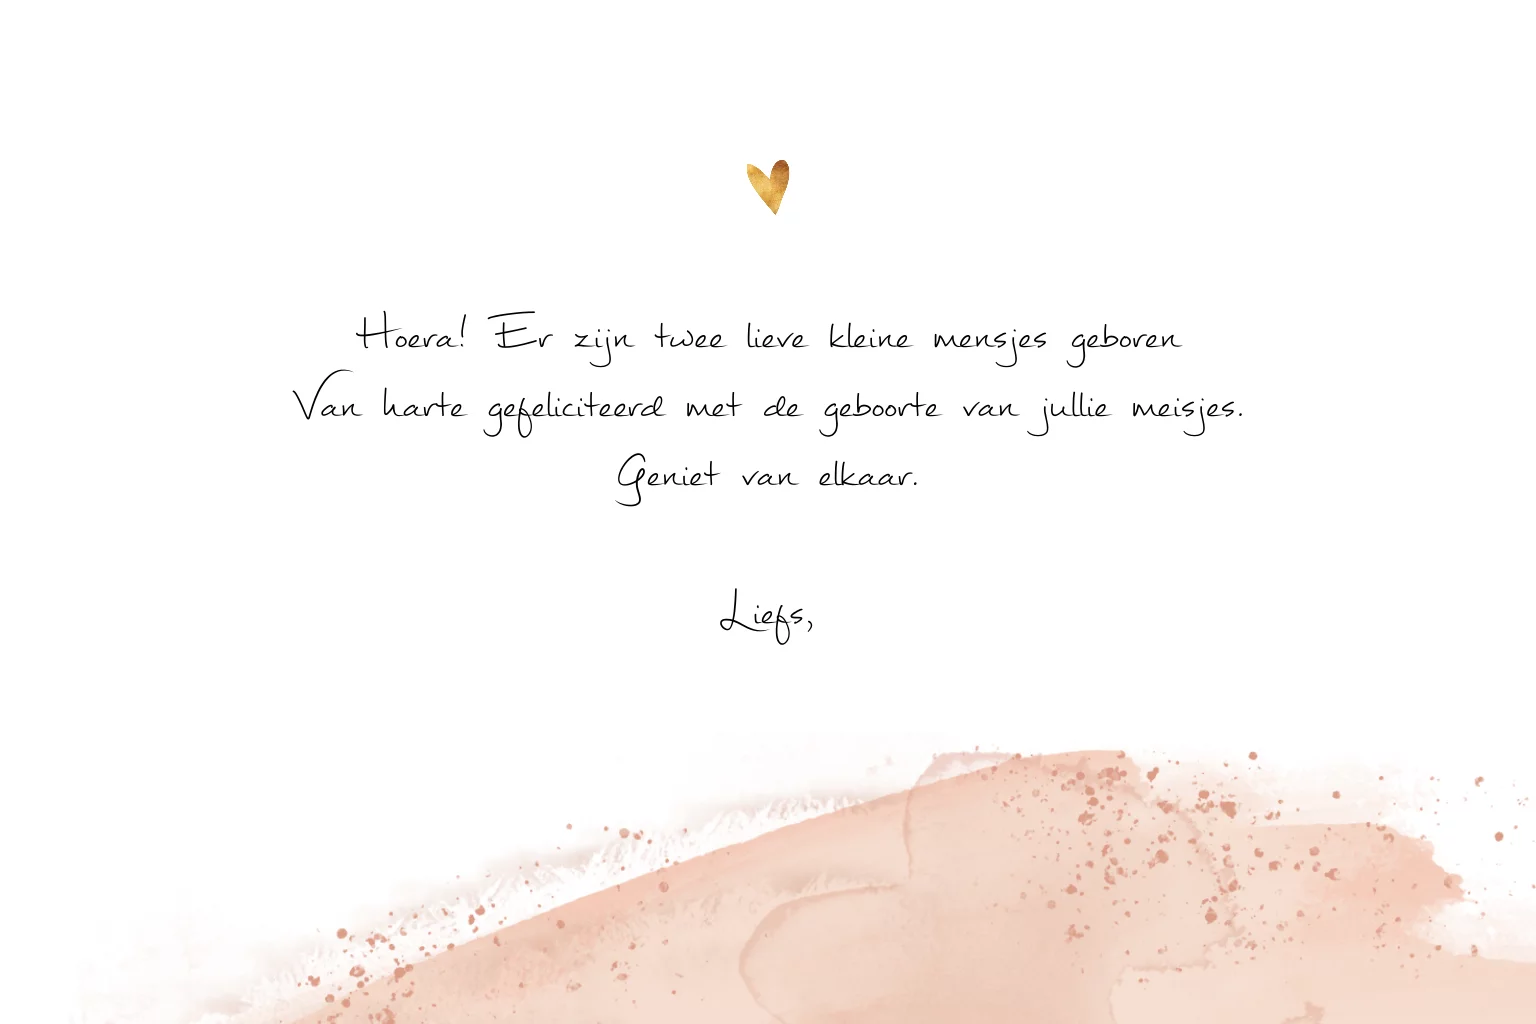 Hoera! Er zijn twee lieve kleine mensjes geboren
Van harte gefeliciteerd met de geboorte van jullie meisjes.
Geniet van elkaar.
Liefs,